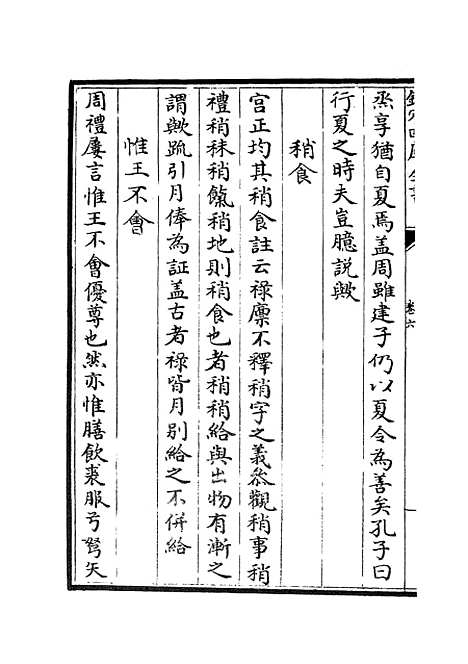 欽定四庫全書
卷六
烝享猶自夏焉蓋周雖建子仍以夏令為善矣孔子曰
行夏之時夫豈臆説歟
稍食
宫正均其稍食註云祿廪不釋稍字之義叅觀稍事稍
禮稍秣稍餼稍地則稍食也者稍稍給與出物有漸之
謂歟䟽引月俸為証蓋古者祿皆月别給之不併給
惟王不會
周禮屢言惟王不會優尊也然亦惟膳飲裘服弓弩矢